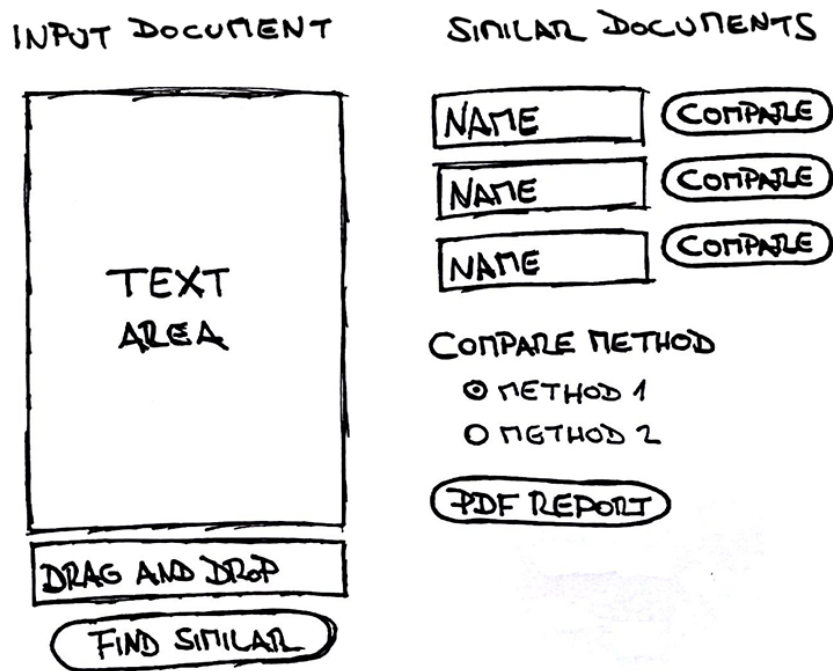 INPUT DOCUMENT
TEXT
AREA
DRAG AND DROP
FIND SIMILAR
SIMILAR DOCUMENTS
NAME COMPARE
NAME COMPARE
NAME COMPARE
COMPARE METHOD
METHOD 1
METHOD 2
PDF REPORT